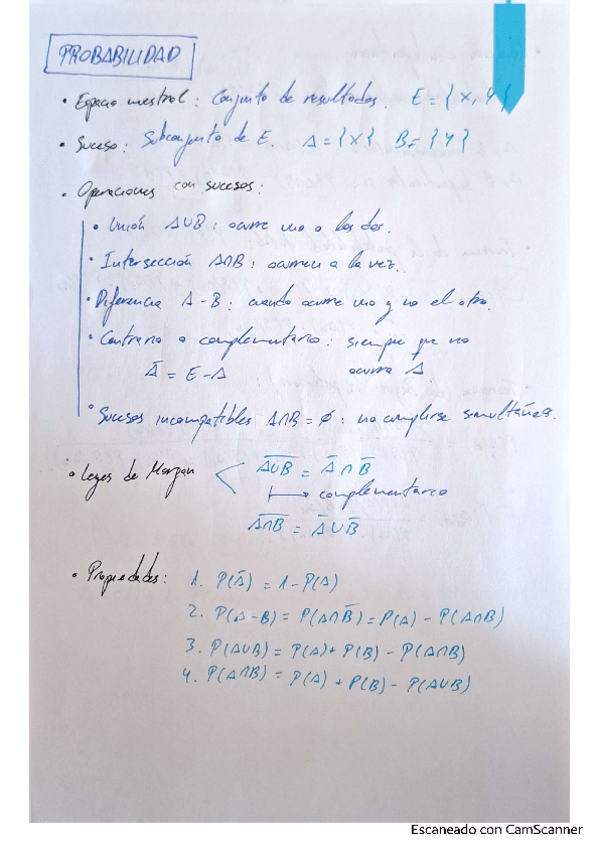 PROBABILIDAD
• Espacio muestral: Conjunto de resultados. E = {X, Y}
• Suceso: Subconjunto de E. A = {X} B = {Y}
• Operaciones con sucesos:
• Unión A∪B: ocurre uno o los dos.
• Intersección A∩B: ocurren a la vez.
• Diferencia A - B: cuando ocurre uno y no el otro.
• Contrario o complementario: siempre que no
Ā = E - A ocurra A
• Sucesos incompatibles A∩B = ∅: no cumplirse simultánea.
• Leyes de Morgan
A̅∪̅B̅ = Ā ∩ B̅
↦ complementario
A̅∩̅B̅ = Ā ∪ B̅
• Propiedades: 1. P(Ā) = 1 - P(A)
2. P(A-B) = P(A∩B̅) = P(A) - P(A∩B)
3. P(A∪B) = P(A) + P(B) - P(A∩B)
4. P(A∩B) = P(A) + P(B) - P(A∪B)
Escaneado con CamScanner